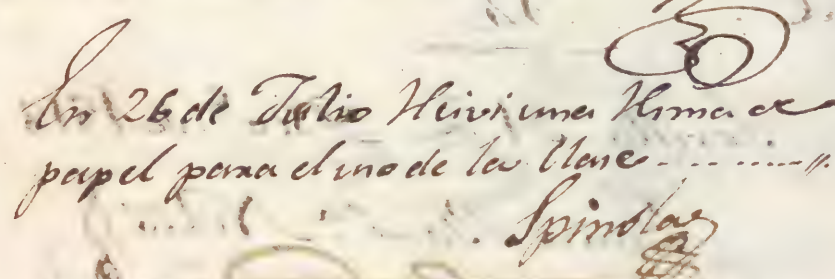 En 26 de Julio Reivi una Rema de
papel para el uso de la Clase
Spinola